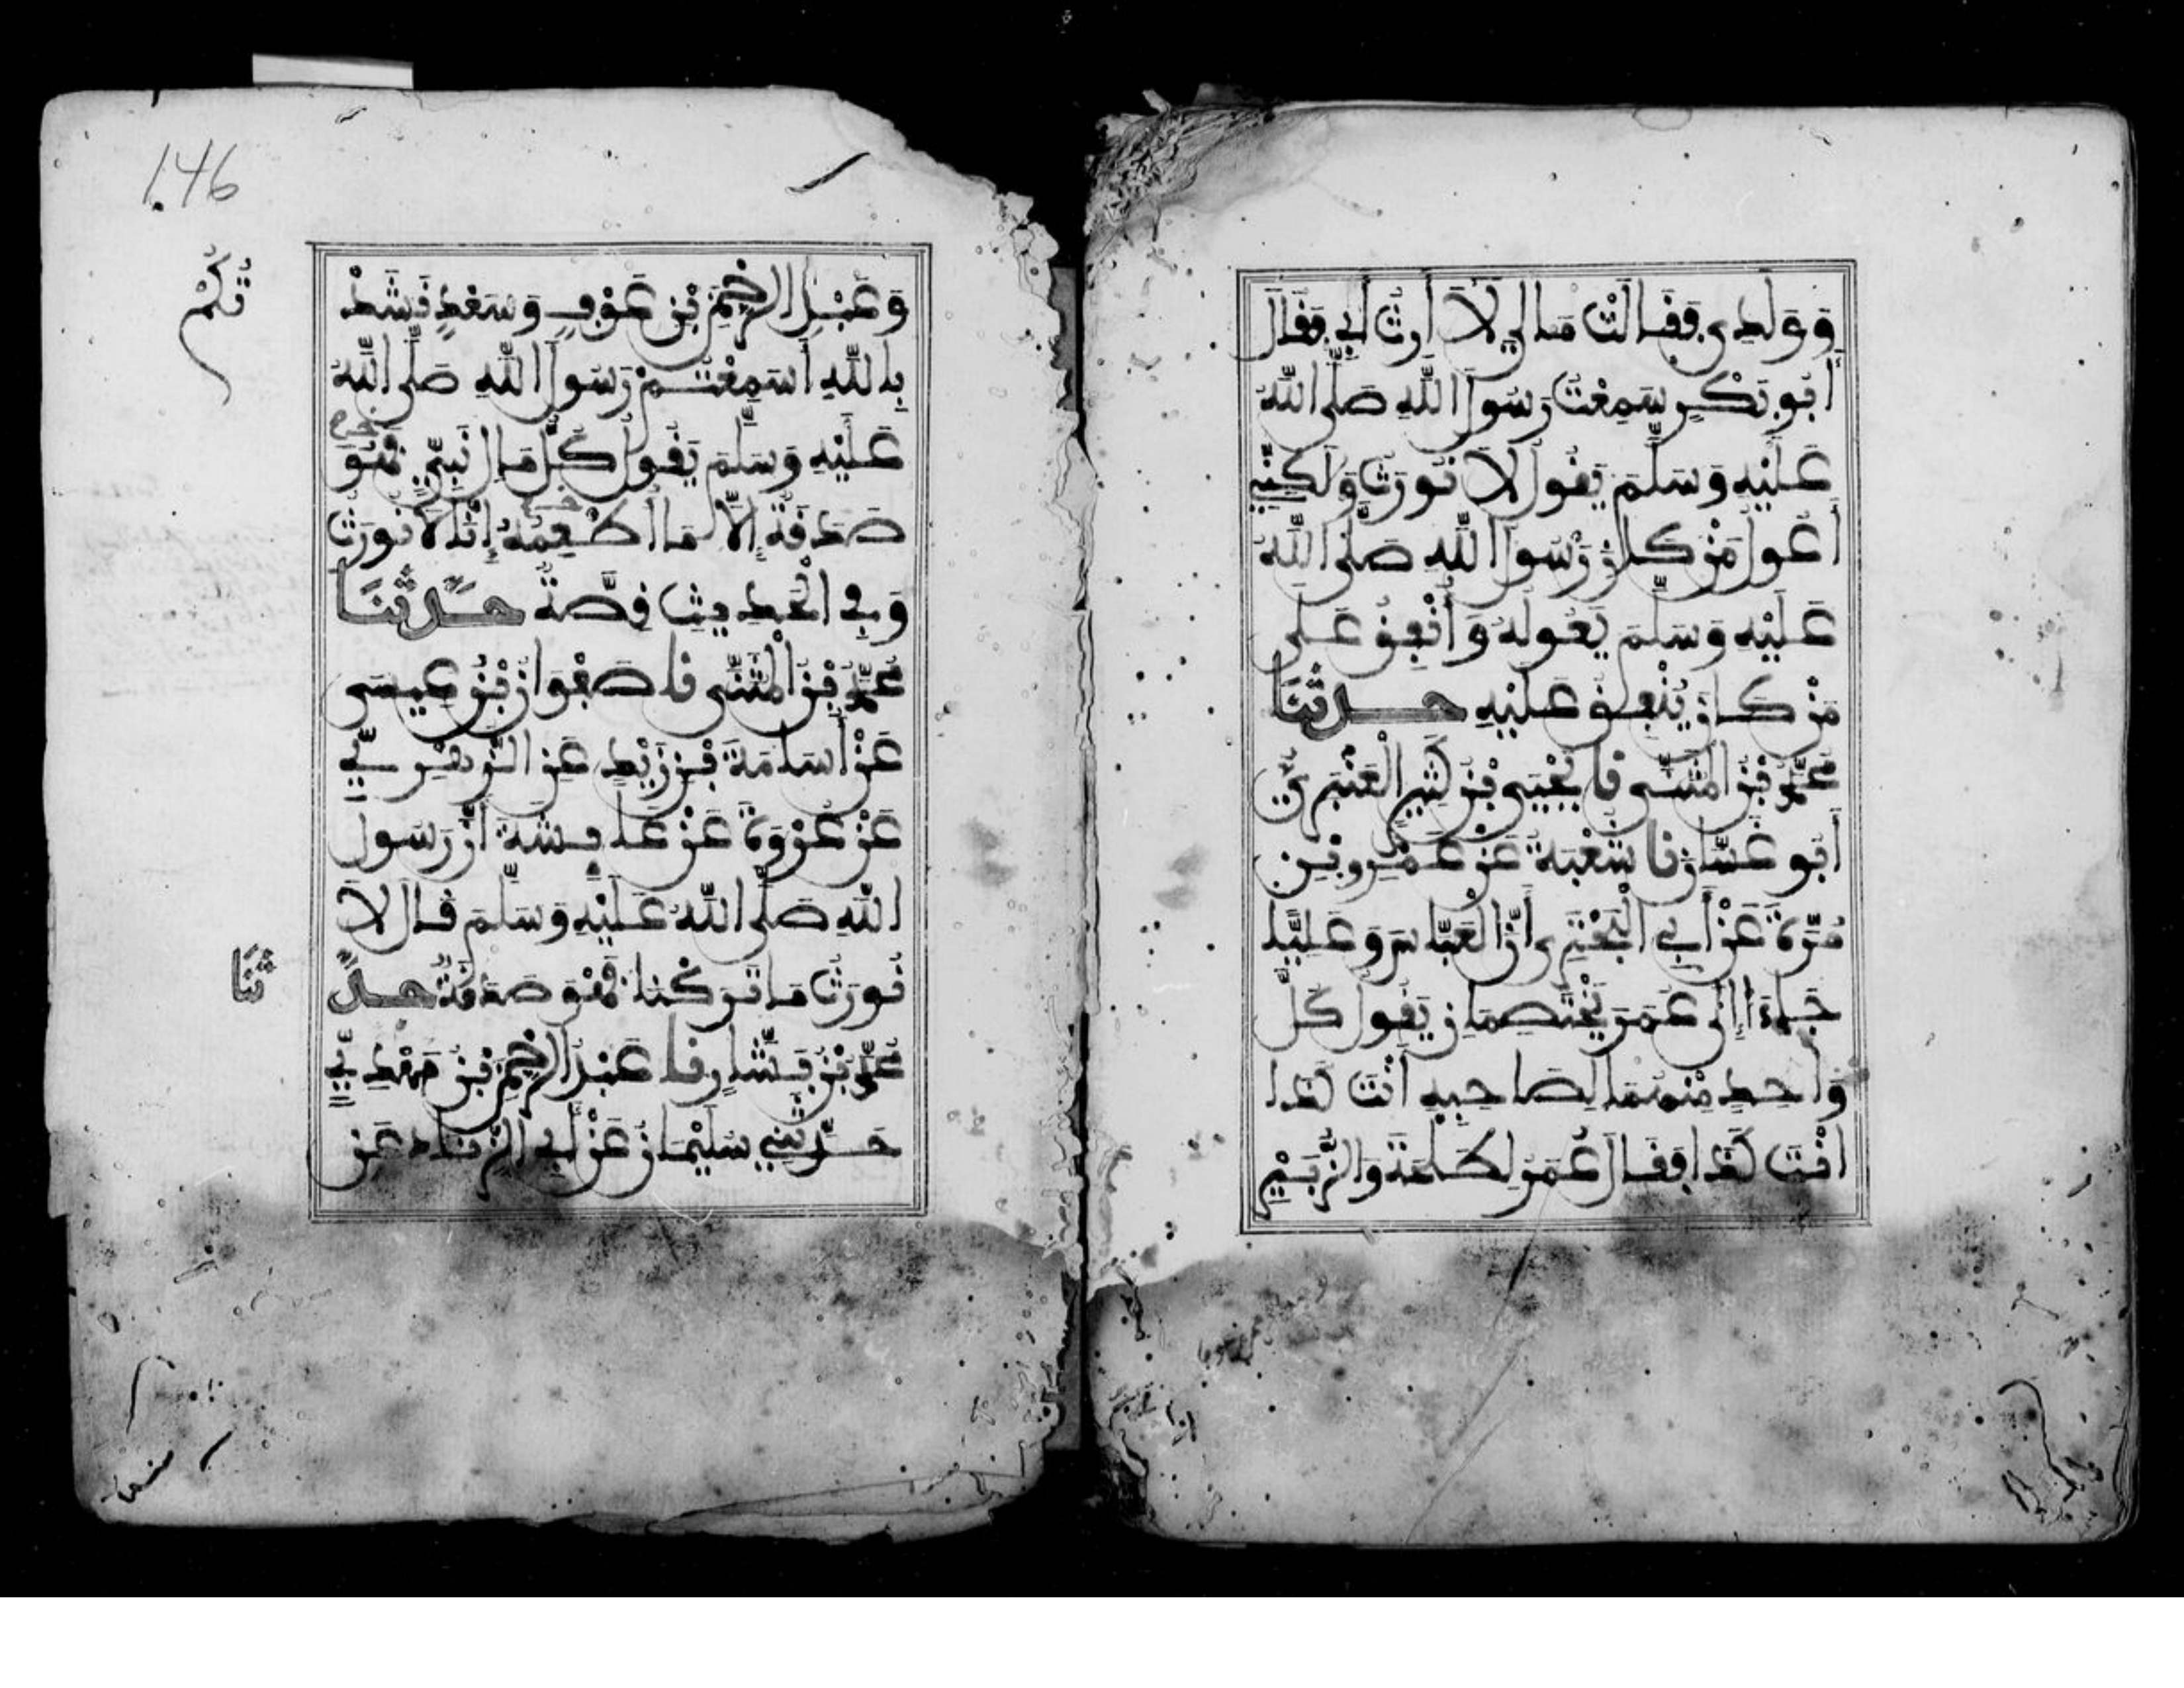 وَوَلَدِي فَقَالَتْ مَا لِي لَا أَرِثُ أَبِي فَقَالَ
أَبُو بَكْرٍ سَمِعْتُ رَسُولَ اللَّهِ صَلَّى اللَّهُ
عَلَيْهِ وَسَلَّمَ يَقُولُ لَا نُورَثُ وَلَكِنِّي
أَعُولُ مَنْ كَانَ رَسُولُ اللَّهِ صَلَّى اللَّهُ
عَلَيْهِ وَسَلَّمَ يَعُولُهُ وَأُنْفِقُ عَلَى
مَنْ كَانَ يُنْفِقُ عَلَيْهِ حَدَّثَنَا
مُحَمَّدُ بْنُ الْمُثَنَّى نا يَحْيَى بْنُ كَثِيرٍ الْعَنْبَرِيُّ
أَبُو غَسَّانَ نا شُعْبَةُ عَنْ عَمْرِو بْنِ
مُرَّةَ عَنْ أَبِي الْبَخْتَرِي أَنَّ الْعَبَّاسَ وَعَلِيًّا
جَاءَا إِلَى عُمَرَ يَخْتَصِمَانِ يَقُولُ كُلُّ
وَاحِدٍ مِنْهُمَا لِصَاحِبِهِ أَنْتَ كَذَا
أَنْتَ كَذَا فَقَالَ عُمَرُ لِطَلْحَةَ وَالزُّبَيْرِ
146
وَعَبْدِ الرَّحْمَنِ بْنِ عَوْفٍ وَسَعْدٍ نَشَدْ
تُكُمْ
بِاللَّهِ أَسَمِعْتُمْ رَسُولَ اللَّهِ صَلَّى اللَّهُ
عَلَيْهِ وَسَلَّمَ يَقُولُ كُلُّ مَالِ نَبِيٍّ فَهُوَ
صَدَقَةٌ إِلَّا مَا أَطْعَمَهُ إِنَّا لَا نُورَثُ
وَفِي الْحَدِيثِ قِصَّةٌ حَدَّثَنَا
مُحَمَّدُ بْنُ الْمُثَنَّى نا صَفْوَانُ بْنُ عِيسَى
عَنْ أُسَامَةَ بْنِ زَيْدٍ عَنِ الزُّهْرِيِّ
عَنْ عُرْوَةَ عَنْ عَائِشَةَ أَنَّ رَسُولَ
اللَّهِ صَلَّى اللَّهُ عَلَيْهِ وَسَلَّمَ قَالَ لَا
نُورَثُ مَا تَرَكْنَا فَهُوَ صَدَقَةٌ حَدَّ
ثَنَا
مُحَمَّدُ بْنُ بَشَّارٍ نا عَبْدُ الرَّحْمَنِ بْنُ مَهْدِيٍّ
حَدَّثَنِي سُلَيْمَانُ عَنْ أَبِي الزِّنَادِ عَنِ